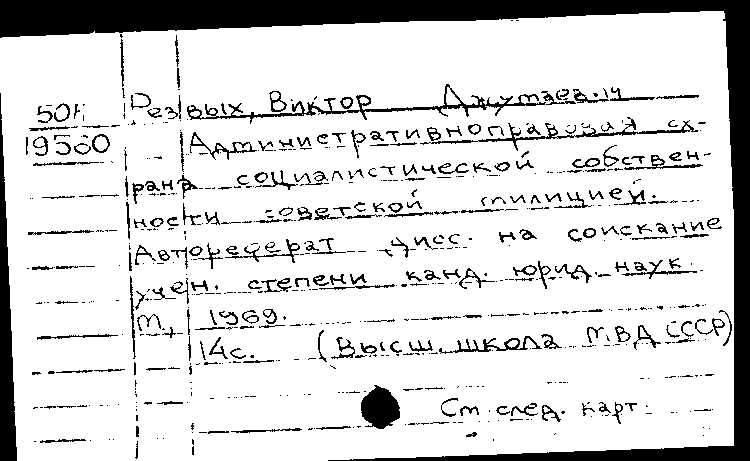 50к Резвых, Виктор Джумаев.ич
19560 Административноправовая ох-
рана социалистической собствен-
ности советской милицией.
Автореферат дисс. на соискание
учен. степени канд. юрид. наук.
М., 1969.
14с. (Высш. школа МВД СССР)
См след. карт.